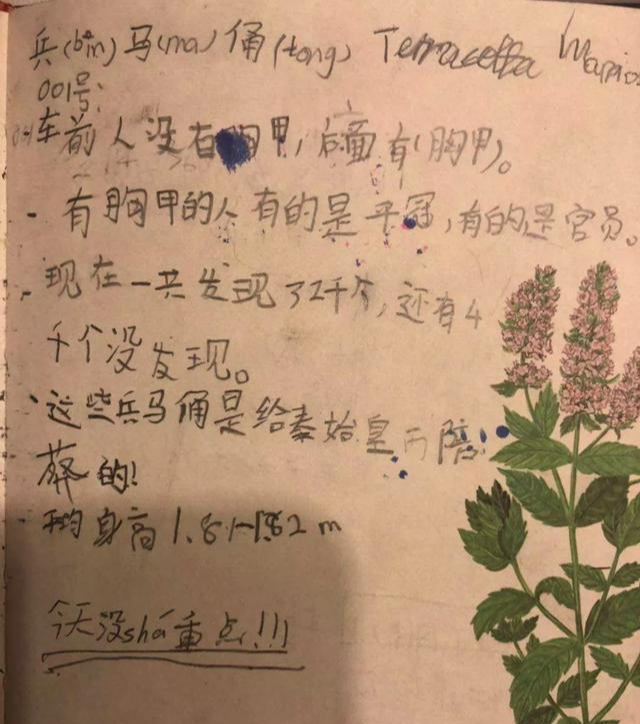 兵(bīn)马(ma)俑(tong) Terracotta Warrio
001号:
车前人没有胸甲,后面有(胸甲)。
- 有胸甲的人有的是平冠,有的是官员。
- 现在一共发现了2千个,还有4
千个没发现。
这些兵马俑是给秦始皇而陪
葬的!
- 平均身高1.81-1.82m
今天没shá重点!!!